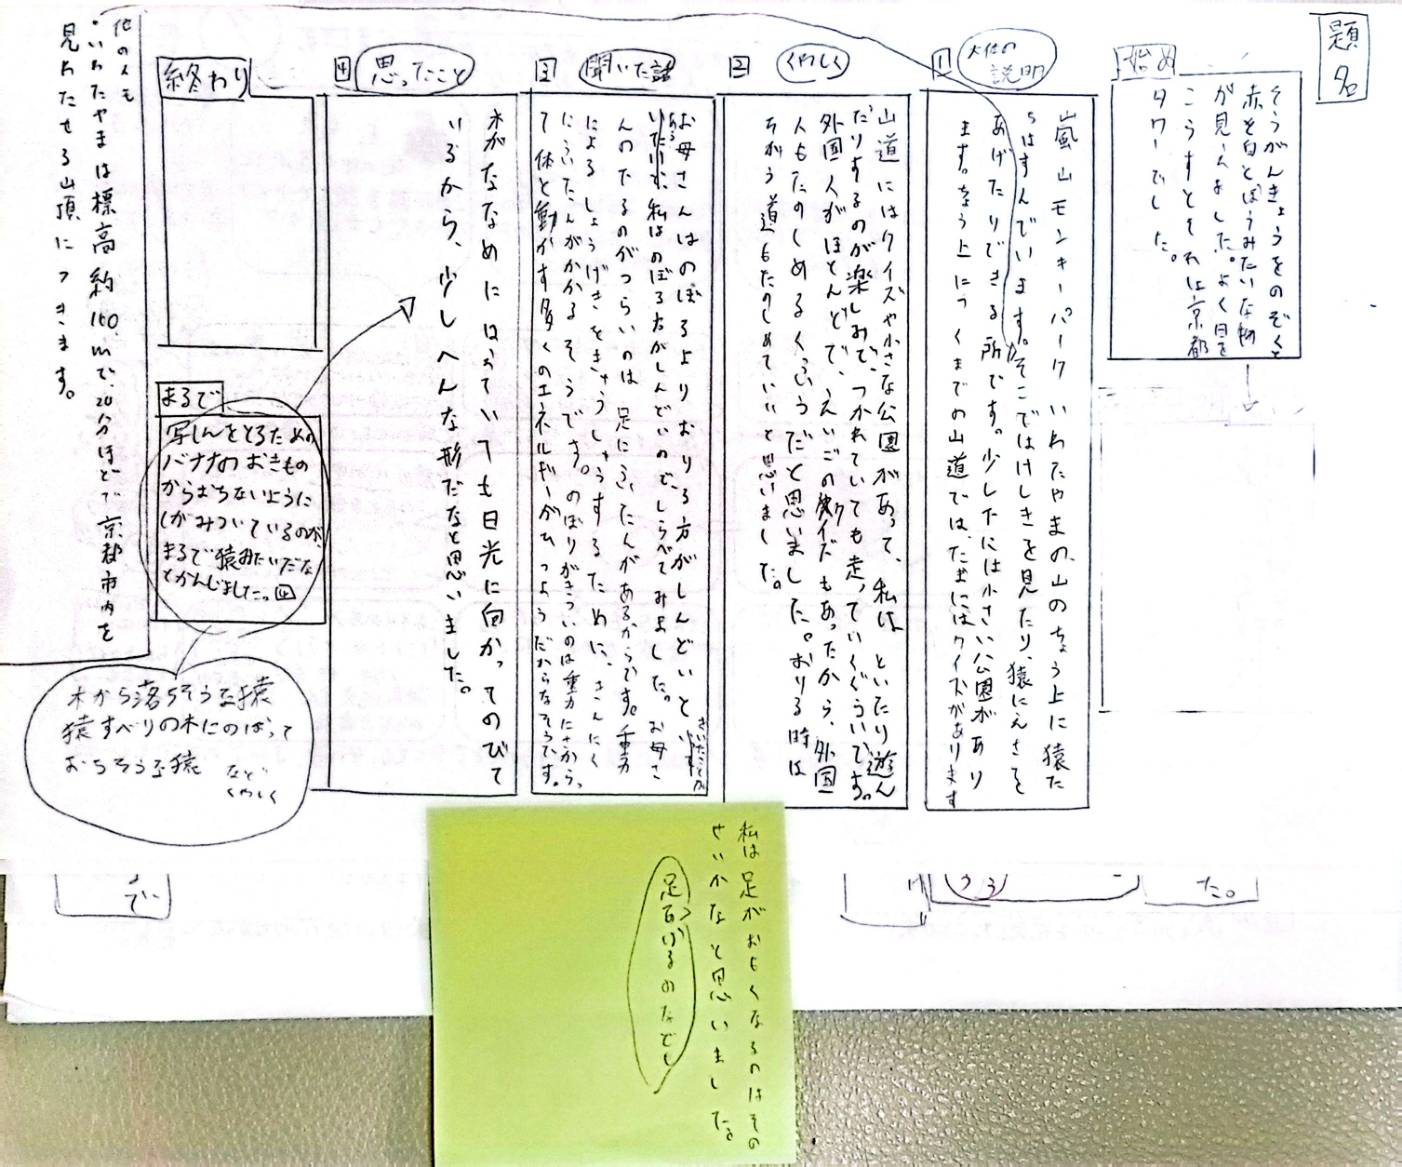 題名
始め
そうがんきょうをのぞくと
赤と白とぼうみたいな物
が見えました。よく目を
こらすとそれは京都
タワーでした。
1
大体の
説明
嵐山モンキーパークいわたやまの、山のちょう上に猿た
ちはすんでいます。そこではけしきを見たり猿にえさを
あげたりできる所です。少し下には小さい公園があり
ます。ちょう上につくまでの山道では、たまにはクイズがあります
2
くわしく
山道にはクイズや小さな公園があって、私は、といたり遊ん
だりするのが楽しみで、つかれていても走っていくぐらいです。
外国人がほとんどで、えいごのクイズもあったから、外国
人もたのしめるくふうだと思いました。おりる時は
ちがう道もたのしめていいと思いました。
3
聞いた話
お母さんはのぼるよりおりる方がしんどいと
きいたことが
ある
私はのぼる方がしんどいので、しらべてみました。お母さ
んのたるのがつらいのは足にふたんがあるからです。重力
によるしょうげきをきゅうしゅうするために、きんにく
にふたんがかかるそうです。のぼりがきついのは重力にさから
て体を動かす多くのエネルギーがひつようだからなそうです。
4
思ったこと
木がななめにはっていても日光に向かってのびて
いるから、少しへんな形だなと思いました。
終わり
まるで
写しんをとるための
バナナのおきもの
からおちないように
しがみついているのが、
まるで猿みたいだな
とかんじました。四
木から落ちそうな猿
猿すべりの木にのぼって
おちそうな猿
など
くわしく
他の人も
・いわたやまは標高約160.mで、20分ほどで京都市内を
見わたせる山頂につきます。
私は足がおもくなるのはその
せいかなと思いました。
た。
で